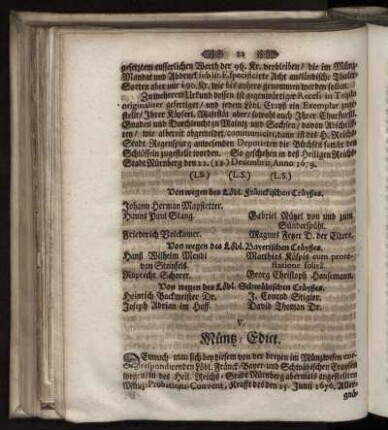 22
gesetztem eusserlichen Werth der 96. Kr. verbleiben / die im Müntz-
Mandat und Abdruck sub lit. F. specificirte Acht außländische Thaler
Sorten aber nur 90. Kr. wie bis anhero genommen werden sollen.
Zu mehrerm Urkund dessen ist gegenwärtiger Recess in Triplo
originaliter gefertiget / und jedem Löbl. Crayß ein Exemplar zuge-
stellt / Ihrer Käyserl. Majestät aber / sowohl auch Ihrer Churfürstl.
Gnaden und Durchleucht zu Mäintz und Sachsen / davon Abschrifften
/ wie allbereit abgemeldet / communiciret, dann ist des H. Reichs
Stadt Regenspurg anwesenden Deputirten die Büchsen sambt den
Schlüsseln zugestellt worden. So geschehen in deß Heiligen Reichs
Stadt Nürnberg den 12. (22) Decembris, Anno 1679.
(L.S.) (L.S.) (L.S.)
Von wegen des Löbl. Fränckischen Cräyses.
Johann Herman Maystetter.
Hanns Paul Stang. Gabriel Nützel von und zum
Sünderspühl.
Friederich Volckauer. Magnus Fetzer D. der Eltere.
Von wegen des Löbl. Bayerischen Cräyses.
Hanß Wilhelm Mendl Matthias Käspis cum prote-
von Steinfels. statione solitâ.
Ruprecht Schorer. Georg Christoph Hansemann.
Von wegen des Löbl. Schwäbischen Cräyses.
Heinrich Backmeister Dr. J. Conrad Stigler.
Joseph Adrian im Hoff. David Thoman Dr.
V.
Müntz Edict.
DEmnach man sich bey diesem von der dreyen im Müntzwesen cor-
respondirenden Löbl. Fränck- Bayer- und Schwäbischer Crayssen
wegen / in des Heil. Reichs-Stadt Nürnberg abermals angestellten
Müntz-Probations-Convent, Krafft des den 15. Junii 1676. Aller-
gnä-